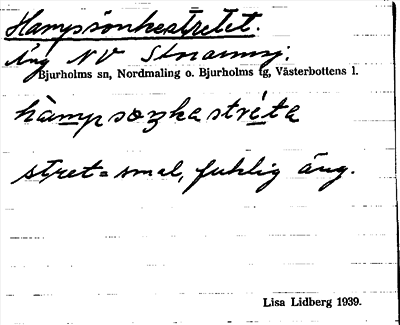 Hampsonkestretet.
Äng NV Storarmsj.
Bjurholms sn, Nordmaling o. Bjurholms tg, Västerbottens l.
hàmpsoŋkastréta
stret = smal, fuktig äng.
Lisa Lidberg 1939.